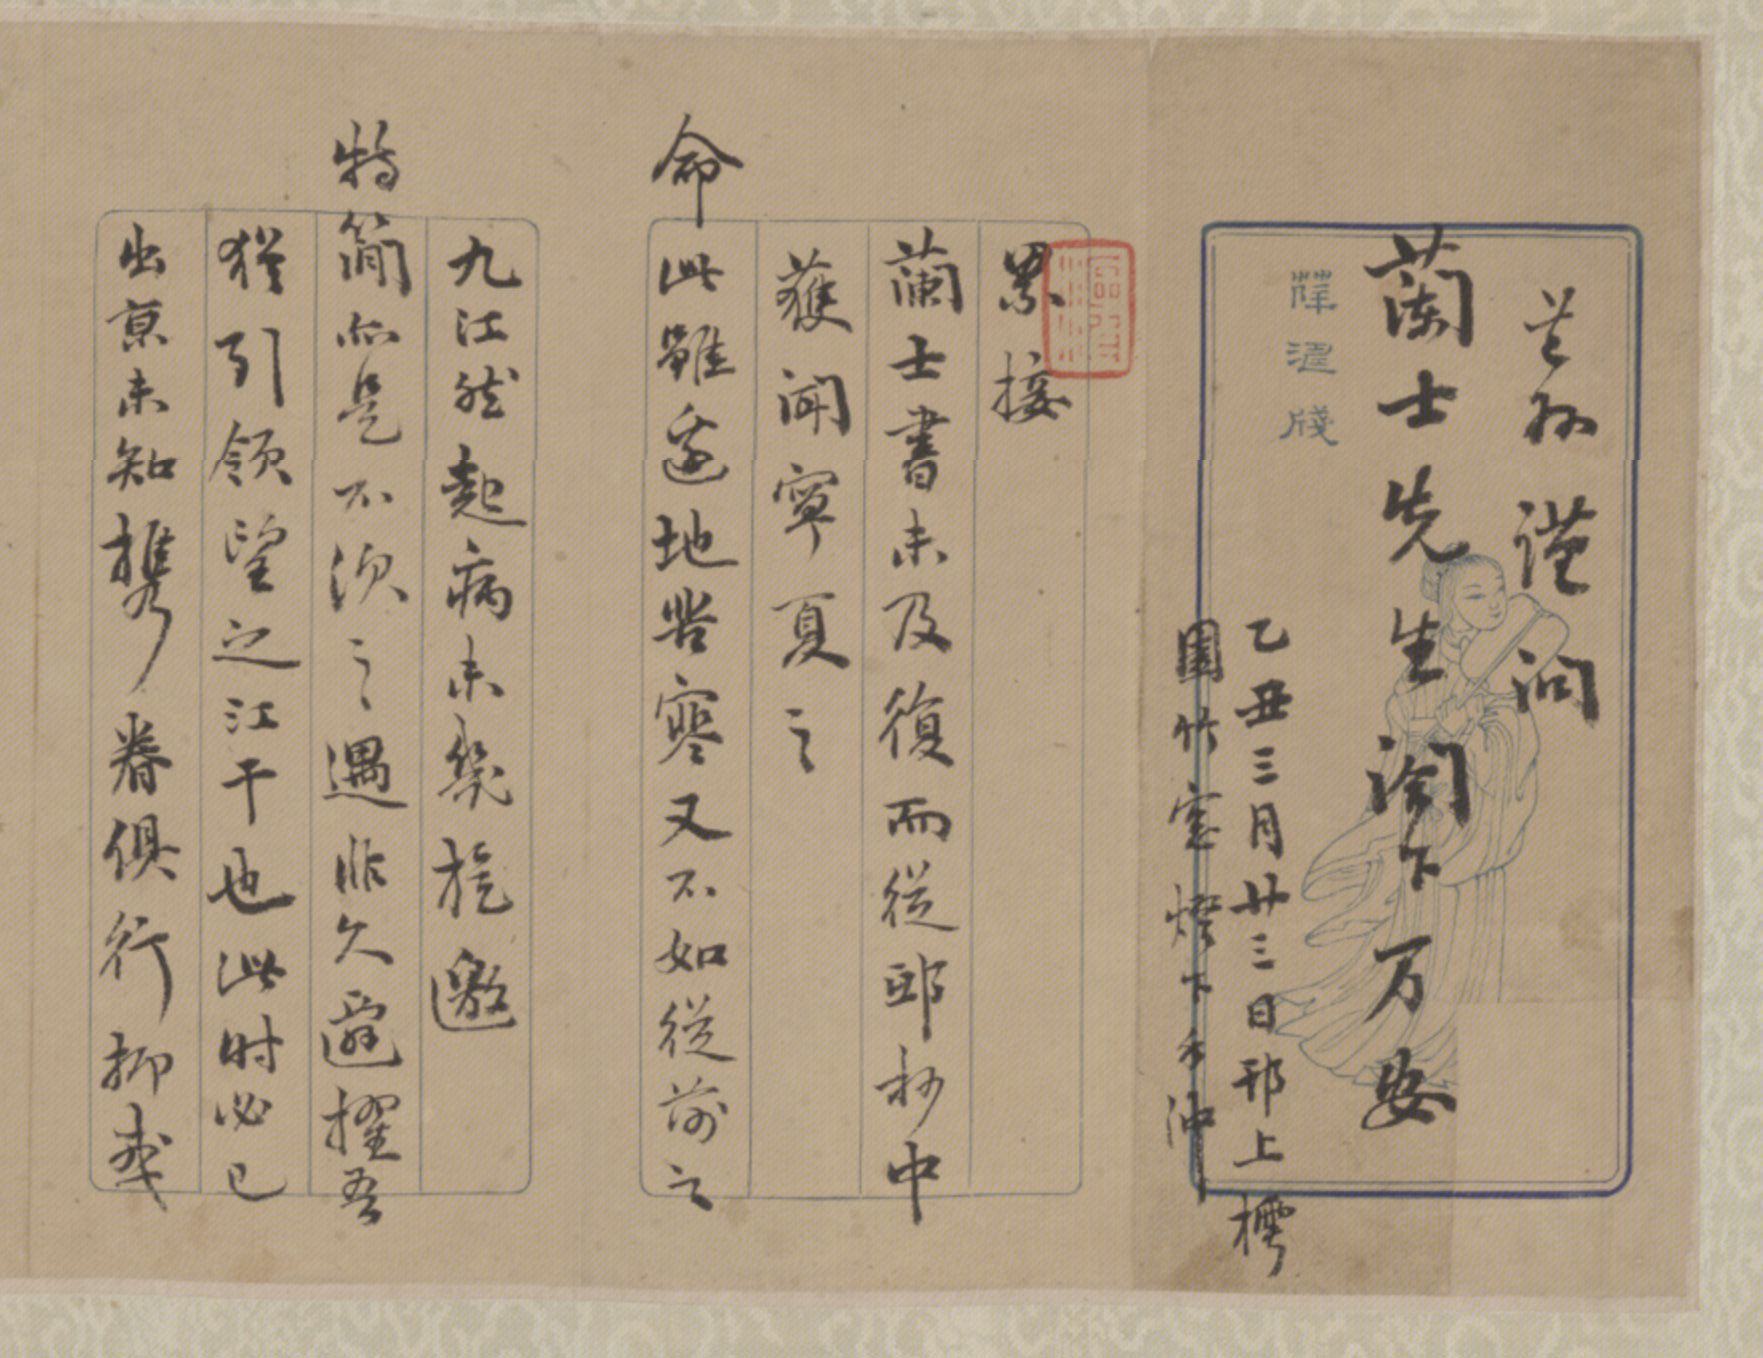 芑孫謹問
蘭士先生閤下万安
乙丑三月廿三日邗上樗
園竹窓燈下手沖
累接
蘭士書未及復而從邸抄中
獲聞寧夏之
命此雖邊地苦寒又不如從前之
九江然起病未幾旋邀
特簡亦是不次之遇非久遷擢吾
猶引領望之江干也此时必已
出京未知携眷俱行抑或